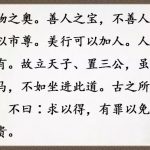 物之奥。善人之宝，不善人
以市尊。美行可以加人。人
有。故立天子、置三公，虽
马，不如坐进此道。古之所
不曰：求以得，有罪以免
贵。